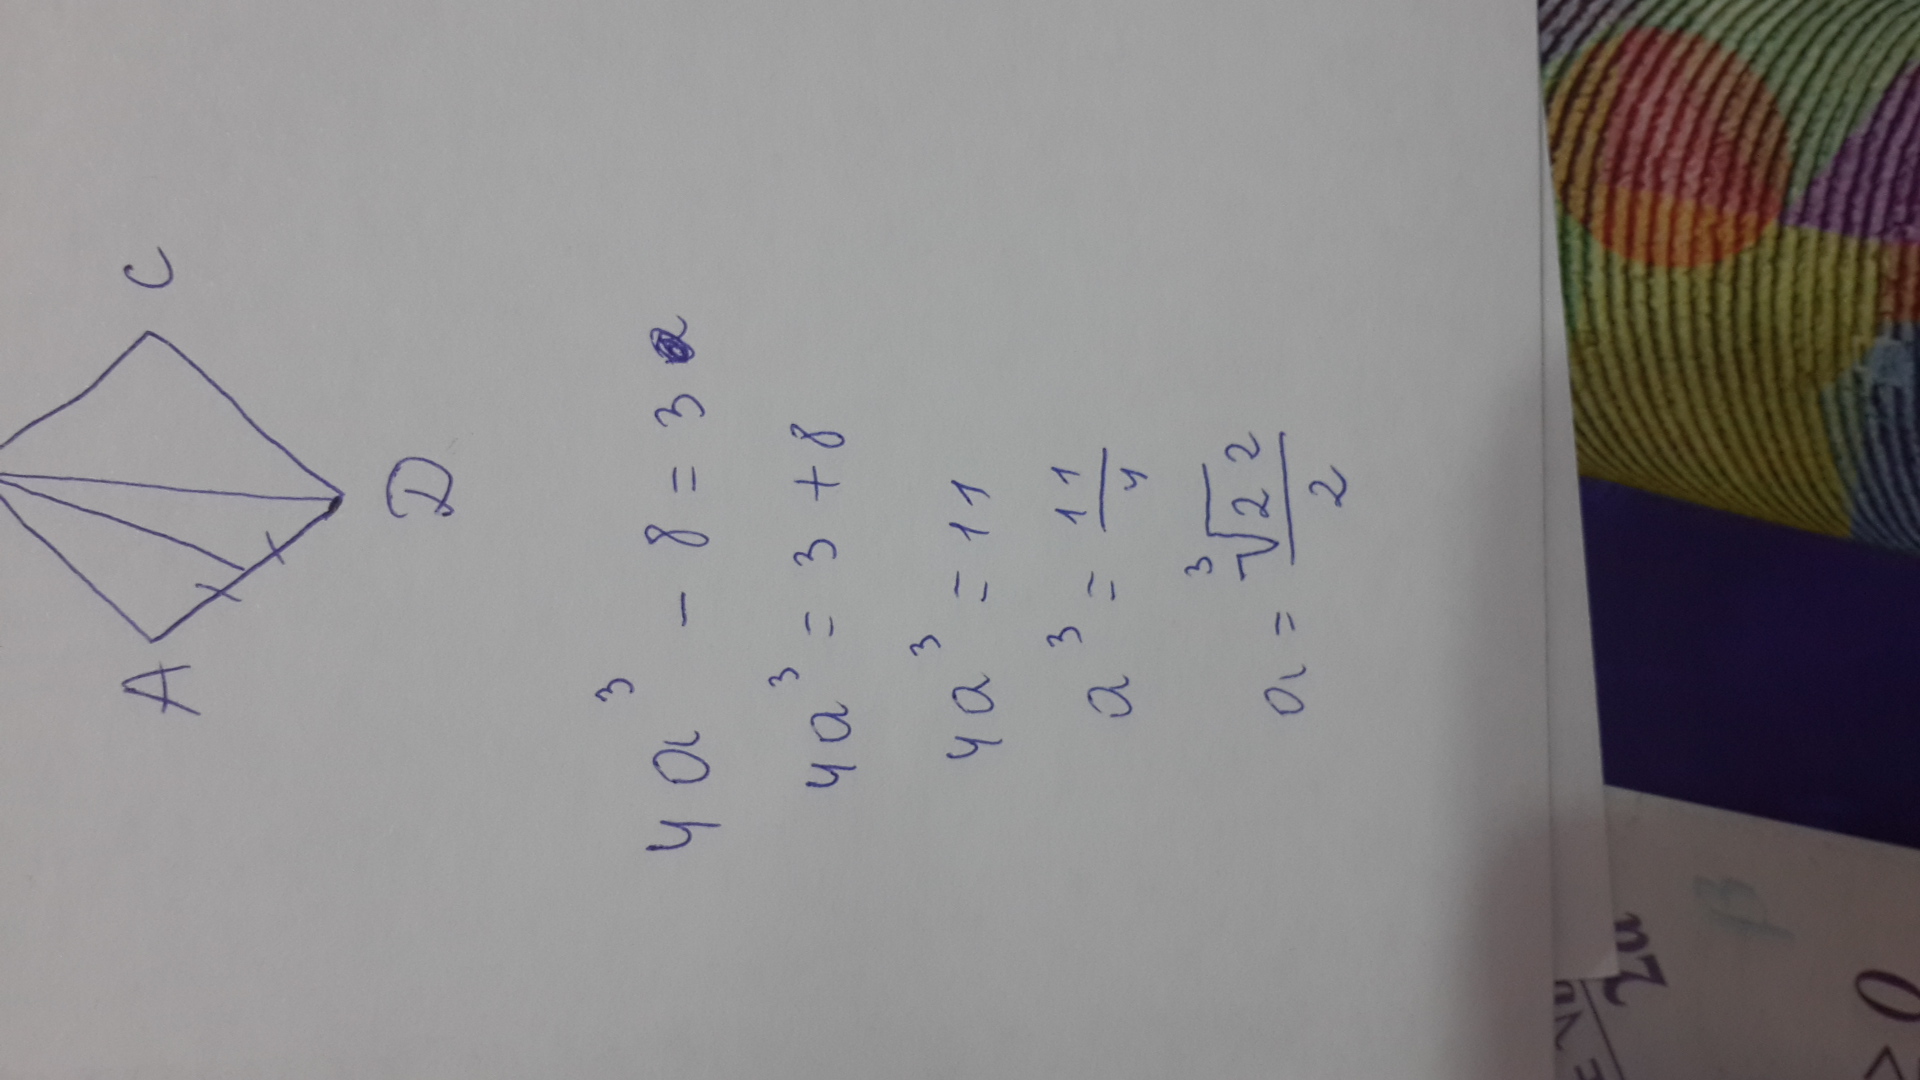 A C
D
4a³ - 8 = 3
4a³ = 3 + 8
4a³ = 11
a³ = 11/4
a = ³√22/2